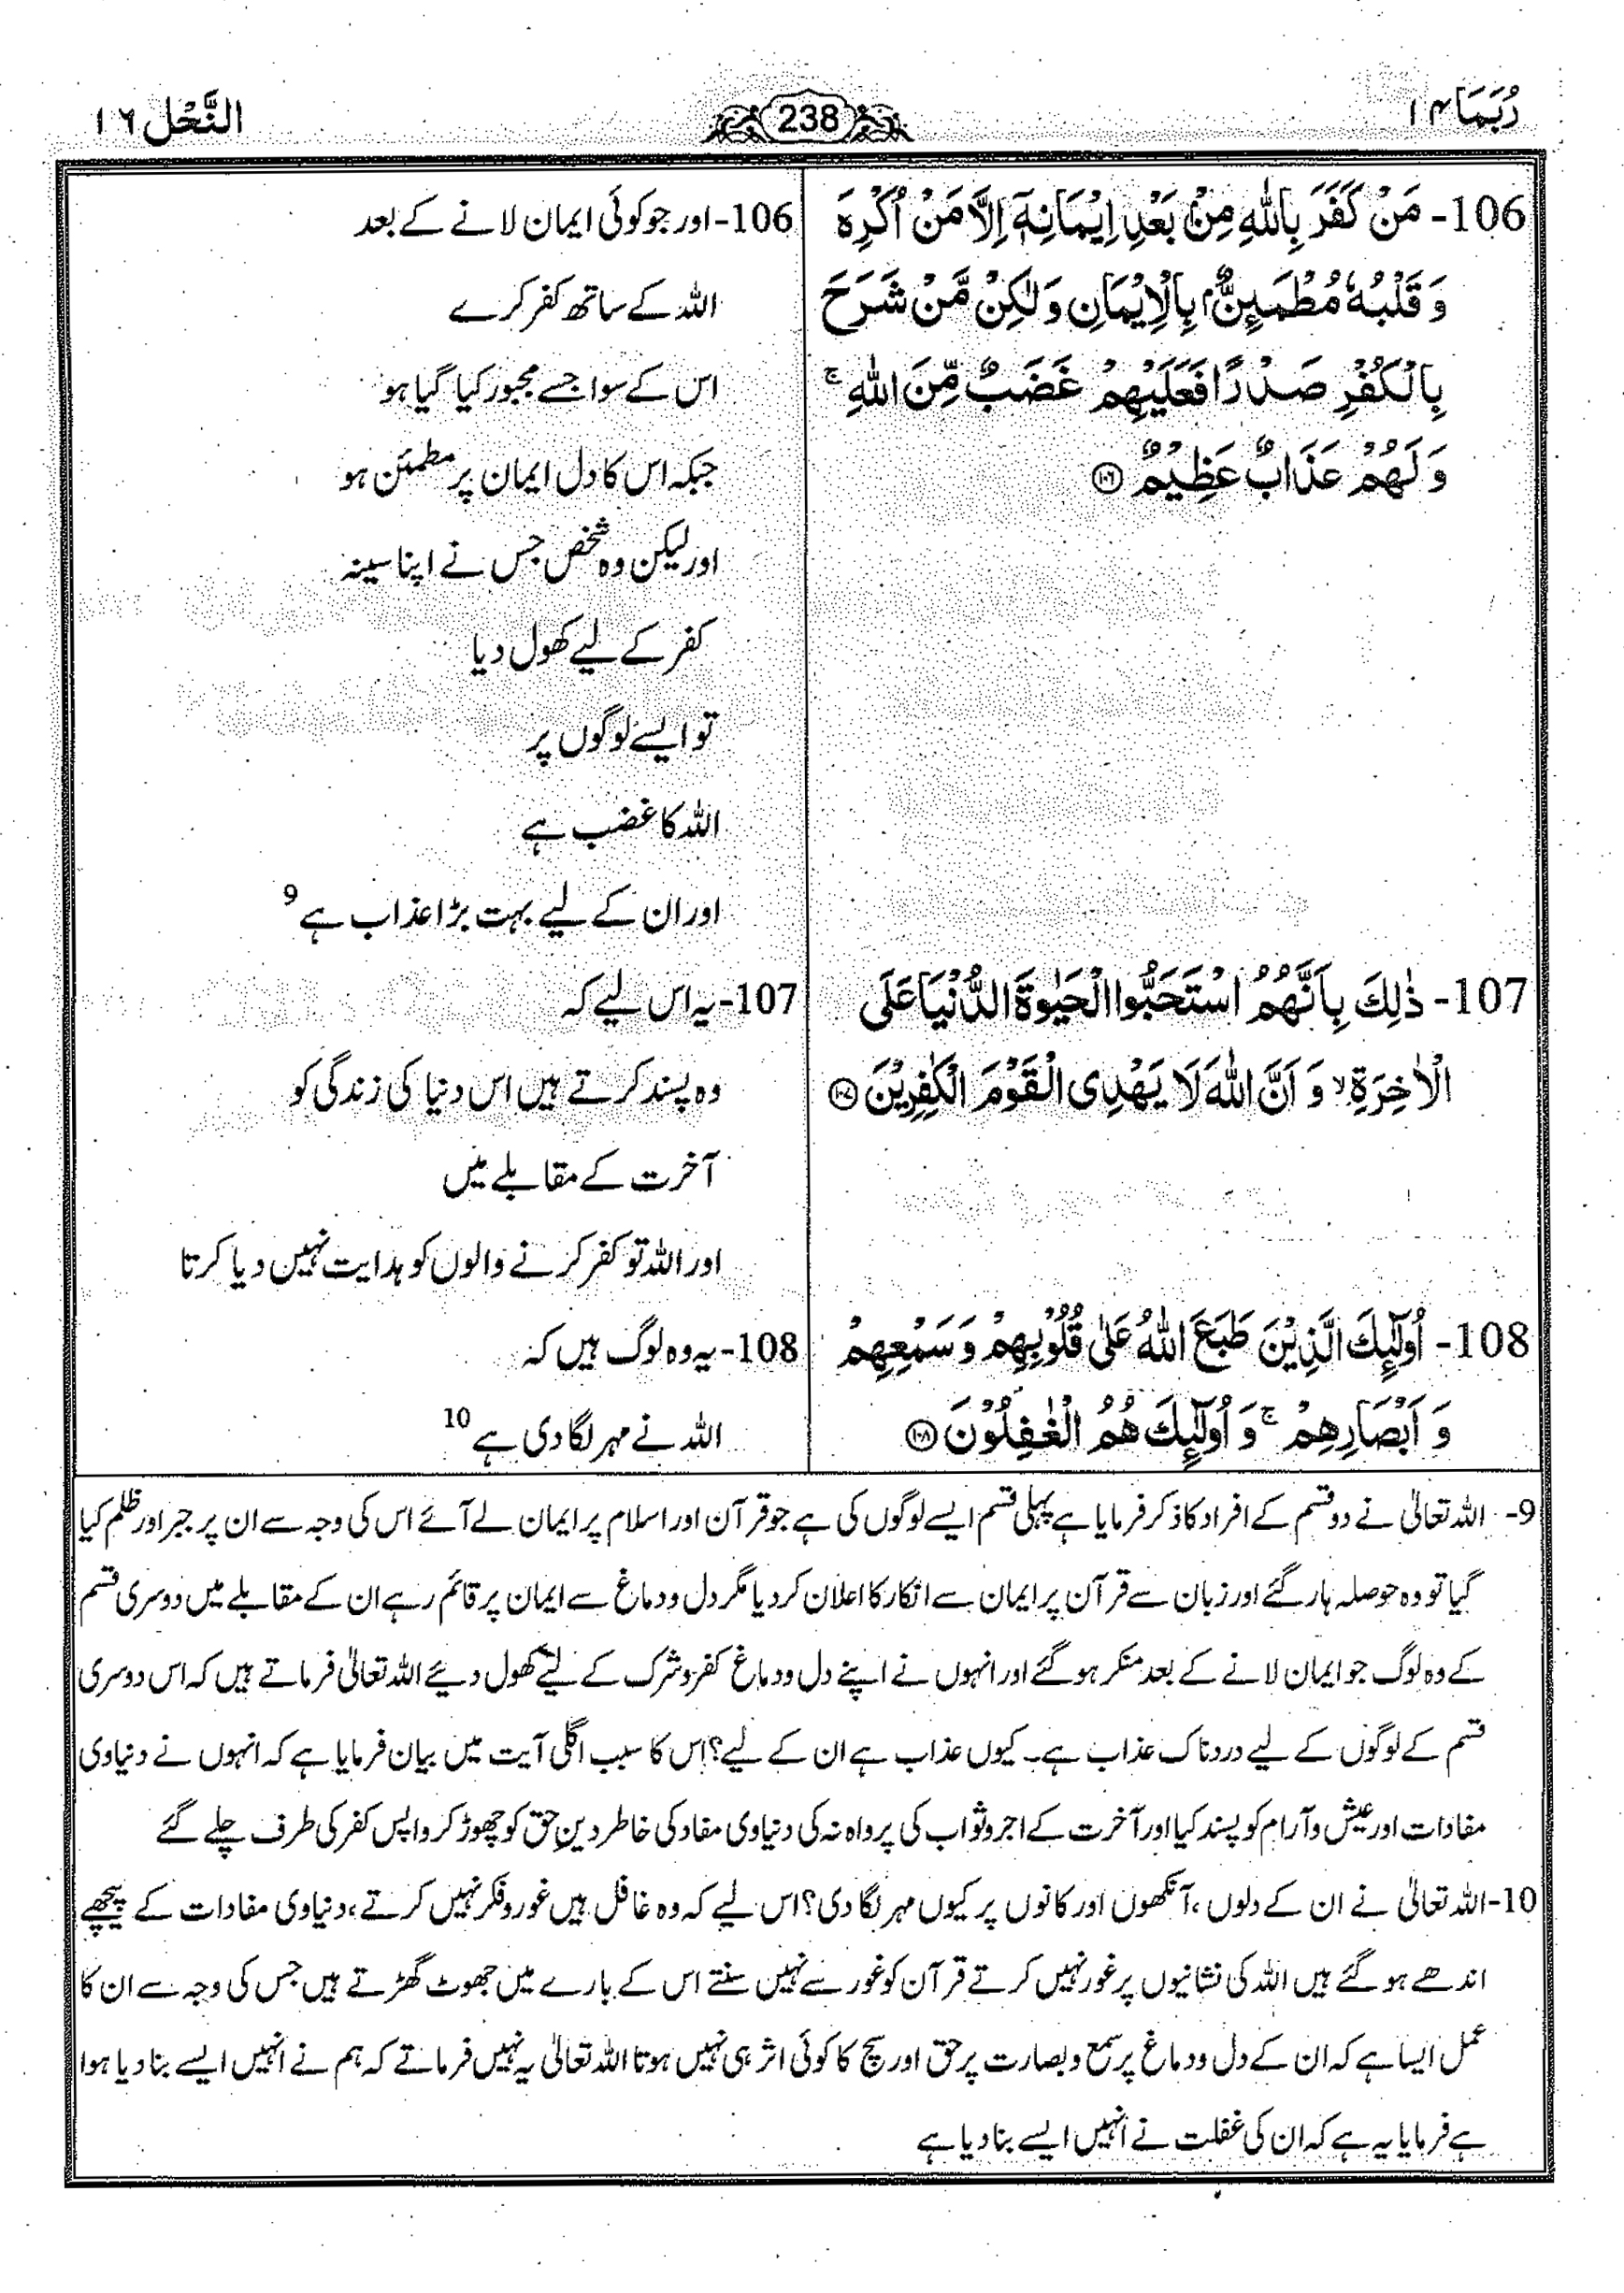 رُبَمَا ۱۴
238
النَّحْل ۱۶
106- مَنْ كَفَرَ بِاللّٰهِ مِنْۢ بَعْدِ اِيْمَانِهٖۤ اِلَّا مَنْ اُكْرِهَ
وَ قَلْبُهٗ مُطْمَىِٕنٌّۢ بِالْاِيْمَانِ وَ لٰكِنْ مَّنْ شَرَحَ
بِالْكُفْرِ صَدْرًا فَعَلَيْهِمْ غَضَبٌ مِّنَ اللّٰهِ ۚ
وَ لَهُمْ عَذَابٌ عَظِيْمٌ ۝۱۰۶
106- اور جو کوئی ایمان لانے کے بعد
اللہ کے ساتھ کفر کرے
اس کے سوا جسے مجبور کیا گیا ہو
جبکہ اس کا دل ایمان پر مطمئن ہو
اور لیکن وہ شخص جس نے اپنا سینہ
کفر کے لیے کھول دیا
تو ایسے لوگوں پر
اللہ کا غضب ہے
اور ان کے لیے بہت بڑا عذاب ہے 9
107- ذٰلِكَ بِاَنَّهُمُ اسْتَحَبُّوا الْحَيٰوةَ الدُّنْيَا عَلَى
الْاٰخِرَةِ ۙ وَ اَنَّ اللّٰهَ لَا يَهْدِى الْقَوْمَ الْكٰفِرِيْنَ ۝۱۰۷
107- یہ اس لیے کہ
وہ پسند کرتے ہیں اس دنیا کی زندگی کو
آخرت کے مقابلے میں
اور اللہ تو کفر کرنے والوں کو ہدایت نہیں دیا کرتا
108- اُولٰٓىِٕكَ الَّذِيْنَ طَبَعَ اللّٰهُ عَلٰى قُلُوْبِهِمْ وَ سَمْعِهِمْ
وَ اَبْصَارِهِمْ ۚ وَ اُولٰٓىِٕكَ هُمُ الْغٰفِلُوْنَ ۝۱۰۸
108- یہ وہ لوگ ہیں کہ
اللہ نے مہر لگا دی ہے 10
9- اللہ تعالیٰ نے دو قسم کے افراد کا ذکر فرمایا ہے پہلی قسم ایسے لوگوں کی ہے جو قرآن اور اسلام پر ایمان لے آئے اس کی وجہ سے ان پر جبر اور ظلم کیا
گیا تو وہ حوصلہ ہار گئے اور زبان سے قرآن پر ایمان سے انکار کا اعلان کر دیا مگر دل و دماغ سے ایمان پر قائم رہے ان کے مقابلے میں دوسری قسم
کے وہ لوگ جو ایمان لانے کے بعد منکر ہو گئے اور انہوں نے اپنے دل و دماغ کفر و شرک کے لیے کھول دیئے اللہ تعالیٰ فرماتے ہیں کہ اس دوسری
قسم کے لوگوں کے لیے دردناک عذاب ہے۔ کیوں عذاب ہے ان کے لیے؟ اِس کا سبب اگلی آیت میں بیان فرمایا ہے کہ انہوں نے دنیاوی
مفادات اور عیش و آرام کو پسند کیا اور آخرت کے اجر و ثواب کی پرواہ نہ کی دنیاوی مفاد کی خاطر دینِ حق کو چھوڑ کر واپس کفر کی طرف چلے گئے
10- اللہ تعالیٰ نے ان کے دلوں، آنکھوں اور کانوں پر کیوں مہر لگا دی؟ اس لیے کہ وہ غافل ہیں غور و فکر نہیں کرتے، دنیاوی مفادات کے پیچھے
اندھے ہو گئے ہیں اللہ کی نشانیوں پر غور نہیں کرتے قرآن کو غور سے نہیں سنتے اس کے بارے میں جھوٹ گھڑتے ہیں جس کی وجہ سے ان کا
عمل ایسا ہے کہ ان کے دل و دماغ پر سمع و بصارت پر حق اور سچ کا کوئی اثر ہی نہیں ہوتا اللہ تعالیٰ یہ نہیں فرماتے کہ ہم نے انہیں ایسے بنا دیا ہوا
ہے فرمایا یہ ہے کہ ان کی غفلت نے انہیں ایسے بنا دیا ہے